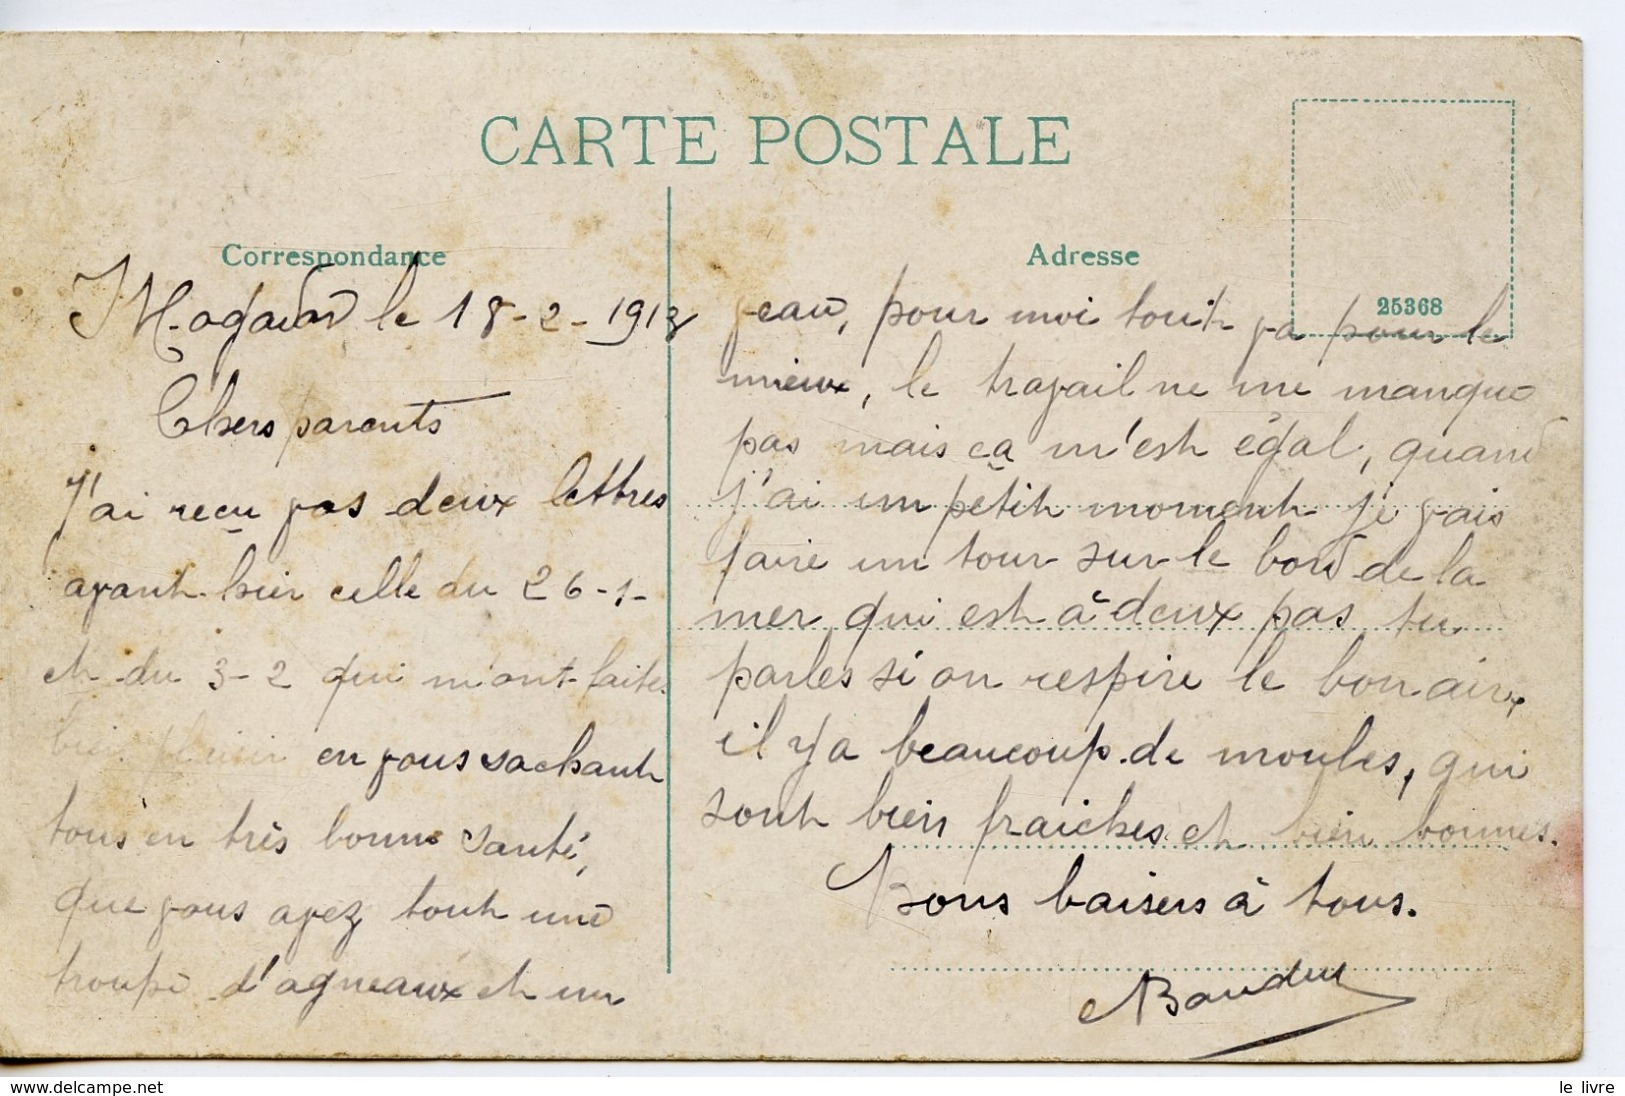 CARTE POSTALE
Correspondance
Mogador le 18-2-1913
Chers parents
J'ai reçu pas deux lettres
avant-hier celle du 26-1-
et du 3-2 qui m'ont faite
bien plaisir en vous sachant
tous en très bonne santé,
que vous avez tout une
troupe d'agneaux et un
Adresse
25368
veau, pour moi tout va pour le
mieux, le travail ne me manque
pas mais ça m'est égal, quand
j'ai un petit moment je vais
faire un tour sur le bord de la
mer qui est à deux pas tu
parles si on respire le bon air,
il y a beaucoup de moules, qui
sont bien fraiches et bien bonnes.
Bons baisers à tous.
www.delcampe.net
le livre